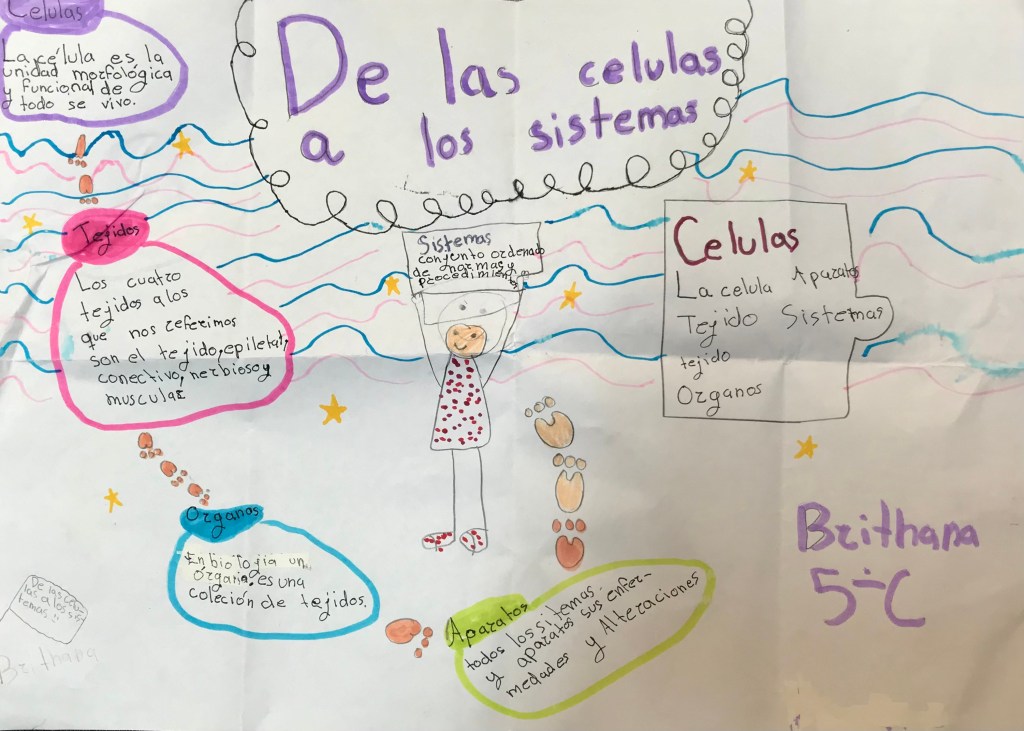 De las celulas
a los sistemas
Celulas
La célula es la
unidad morfológica
y funcional de
todo se vivo.
Tejidos
Los cuatro
tejidos a los
que nos referimos
son el tejido, epiletat,
conectivo, nerbioso y
muscular
Organos
En biología un
órgano. es una
coleción de tejidos.
Aparatos
todos los sitemas.
y aparatos sus enfer-
medades y Alteraciones
Sistemas
conjunto ordenado
de normas y
procedimientos
Celulas
La celula Aparatos
Tejido Sistemas
tejido
Organos
Brithana
5-C
De las celu
las a los sis
temas!!
Brithana